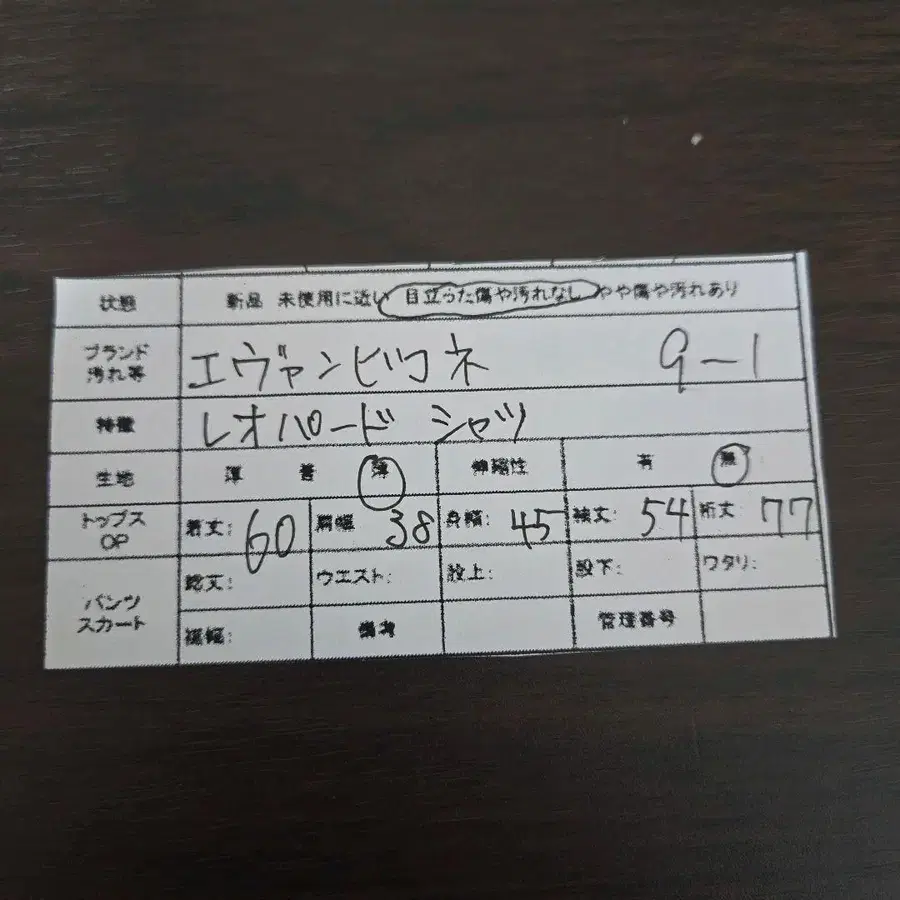 状態 新品 未使用に近い 目立った傷や汚れなし やや傷や汚れあり
ブランド
汚れ等 エヴァンピコネ 9-1
特徴 レオパード シャツ
生地 厚 普 薄 伸縮性 有 無
トップス
OP 着丈: 60 肩幅 38 身幅: 45 袖丈: 54 裄丈 77
パンツ
スカート 総丈: ウエスト: 股上: 股下: ワタリ:
裾幅: 備考 管理番号